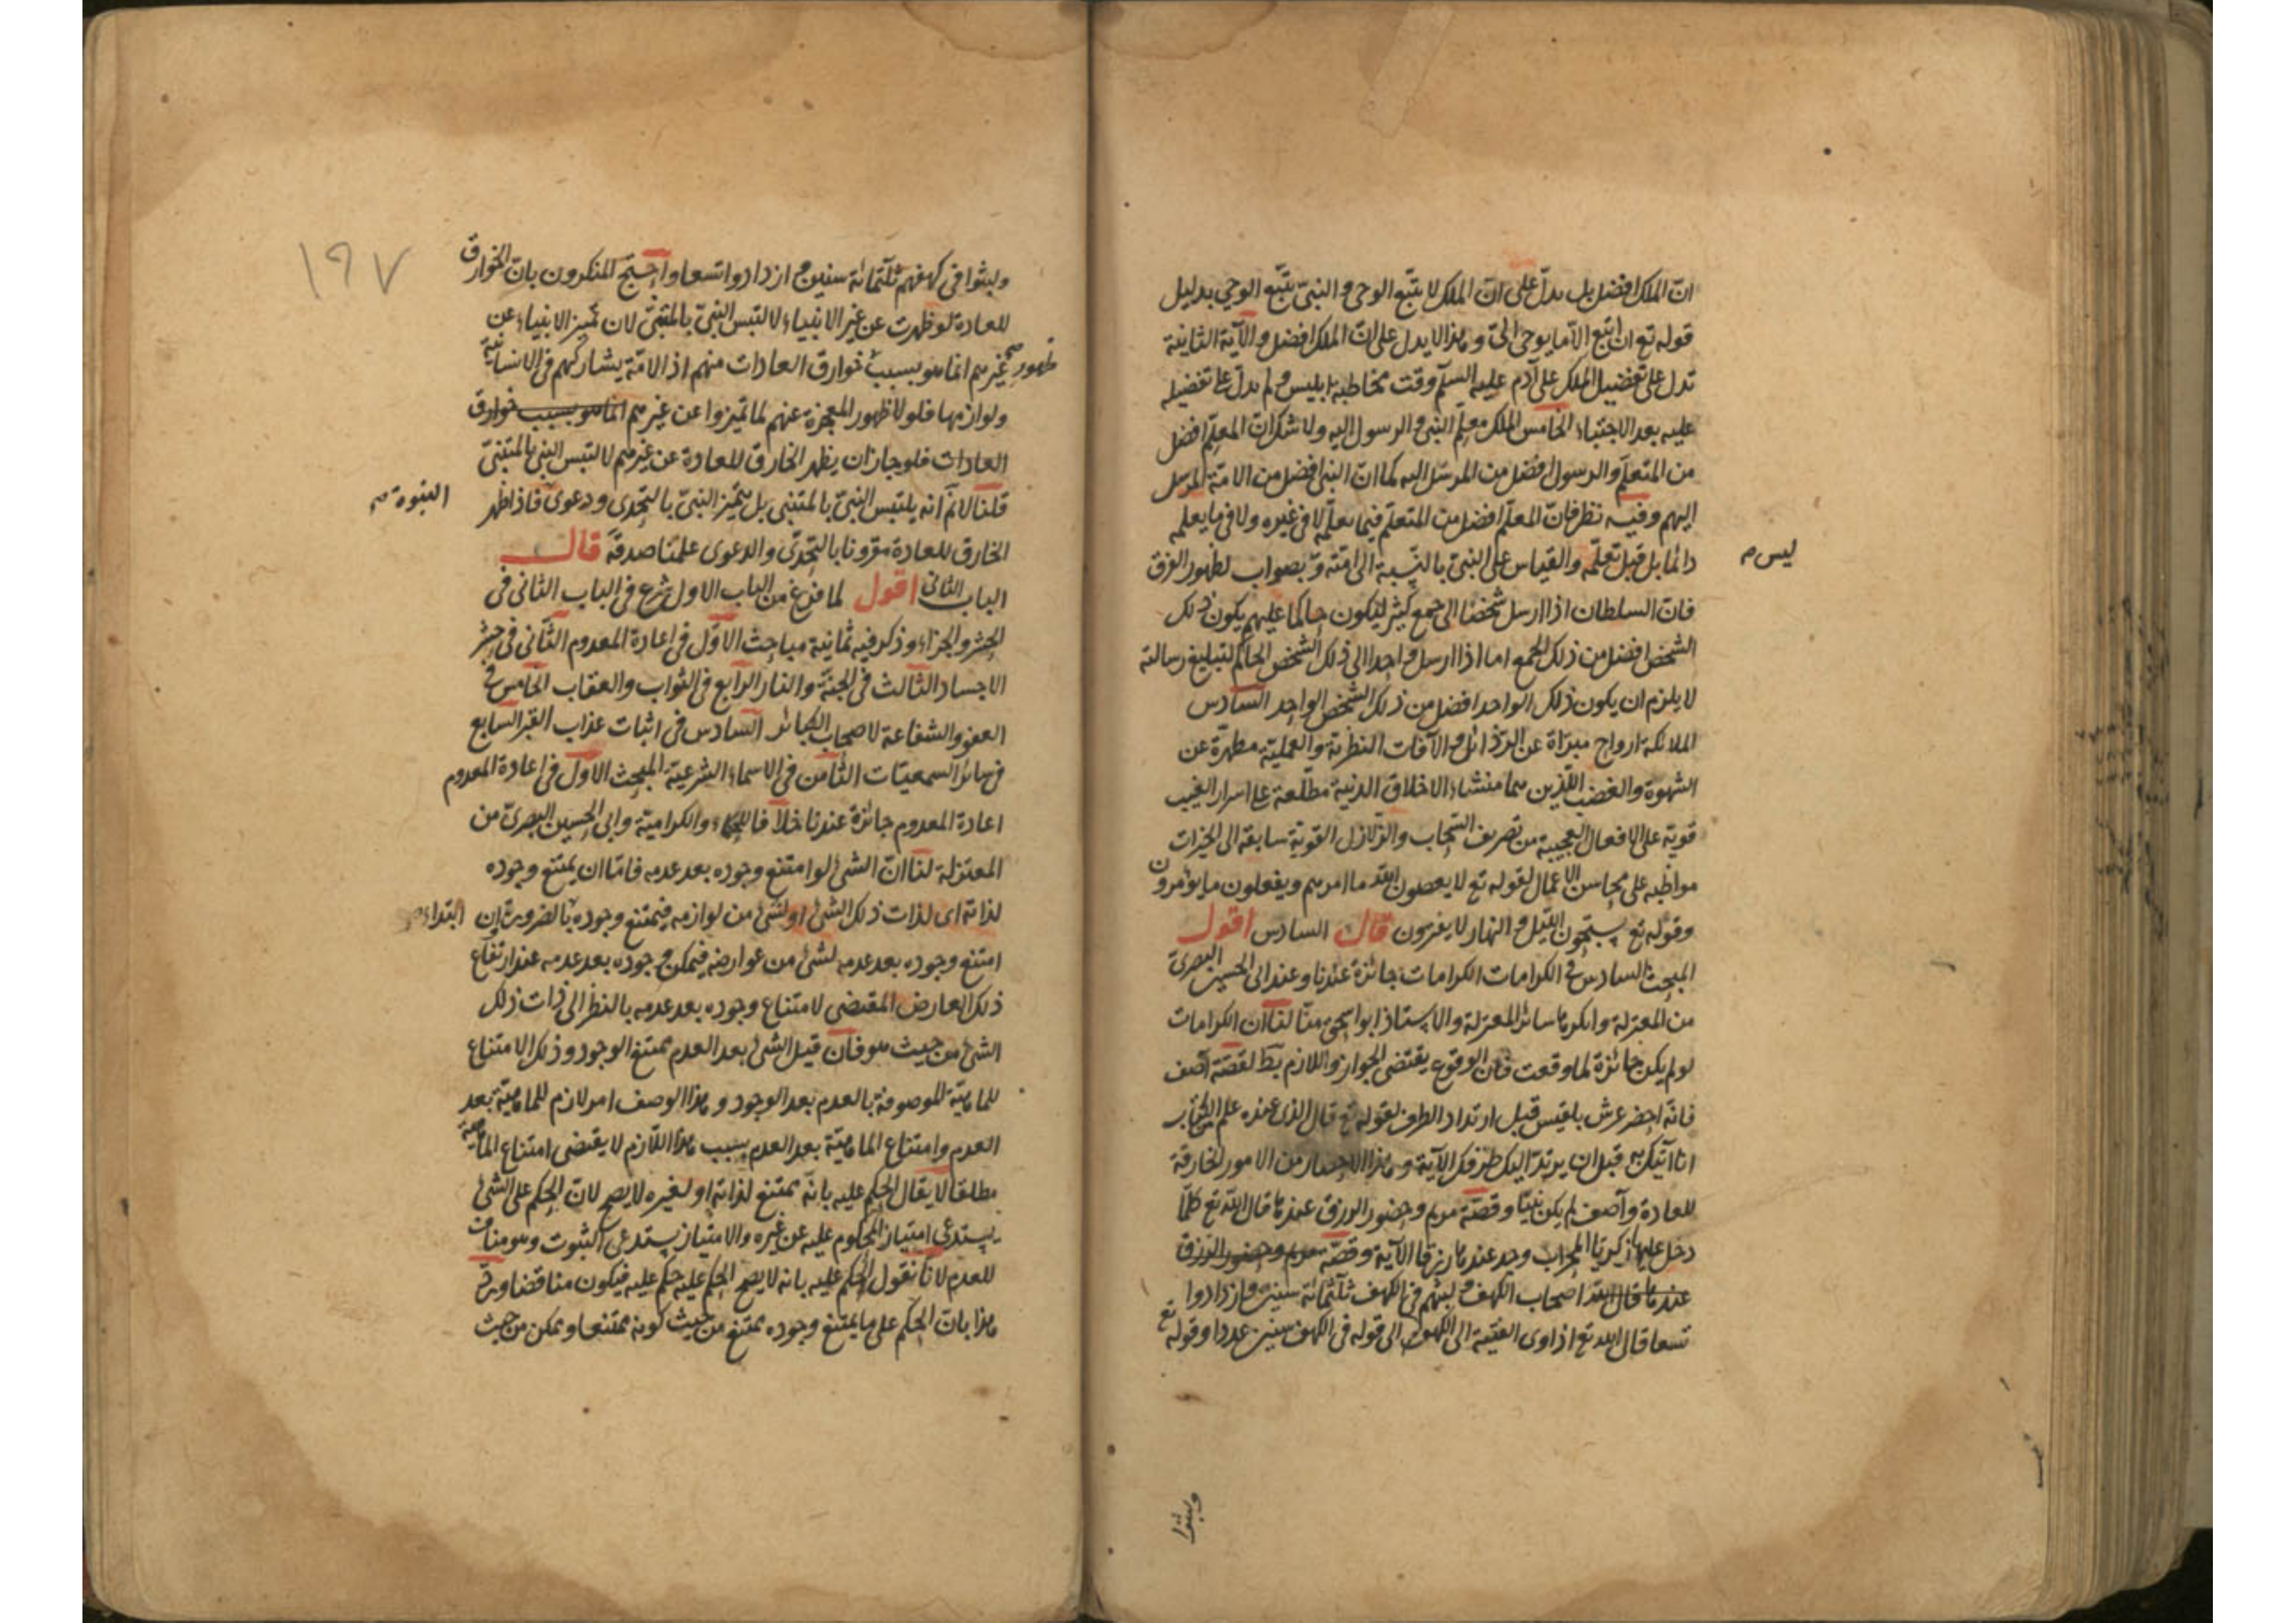 انّ الملك افضل بل يدلّ على انّ الملك لا يتبّع الوحى و النبىّ يتبّع الوحي بدليل
قوله تع ان اتبع الّا ما يوحى الىّ و هذا لا يدل على انّ الملك افضل و الآية الثانية
تدل على تفضيل الملك على آدم عليه السلم وقت مخاطبة ابليس و لم يدلّ على تفضيله
عليه بعد الاجتباء الخامس الملك معلّم النبى و الرسول اليه ولا شك انّ المعلّم افضل
من المتعلّم و الرسول افضل من المرسَل اليه كما انّ النبى افضل من الامّة المرسل
اليهم وفيه نظر فانّ المعلّم افضل من المتعلّم فيما يعلّمه لا فى غيره ولا فى ما يعلمه
دائما بل قبل تعلّمه والقياس على النبىّ بالنّسبة الى امّته بصواب لظهور الفرق
ليس
فانّ السلطان اذا ارسل شخصا الى جمع كثير ليكون حاكما عليهم يكون ذلك
الشخص افضل من ذلك الجمع اما اذا ارسل واحدا الى ذلك الشخص الحاكم لتبليغ رسالته
لا يلزم ان يكون ذلك الواحد افضل من ذلك الشخص الواحد السّادس
الملائكة ارواح مبرّاة عن الرّذائل و الآفات النظرية و العملية مطهّرة عن
الشهوة والغضب اللّذين هما منشاء الاخلاق الدنية مطّلعة على اسرار الغيب
قوية على الافعال العجيبة من تصريف السّحاب والزلازل القويّة سابقة الى الخيرات
مواظبة على محاسن الاعمال لقوله تع لا يعصون اللّه ما امرهم ويفعلون ما يؤمرون
وقوله تع يسبّحون اللّيل و النهار لا يفترون قال السادس اقول
المبحث السادس فى الكرامات الكرامات جائزة عندنا وعند ابى الحسين البصرىّ
من المعتزلة وانكرها سائر المعتزلة والاستاذ ابو اسحق منّا لنا انّ الكرامات
لو لم يكن جائزة لما وقعت فان الوقوع يقتضى الجواز واللازم بط لقصّة آصف
فانّه احضر عرش بلقيس قبل ارتداد الطرف لقوله تع قال الذى عنده علم من الكتاب
انا آتيك به قبل ان يرتدّ اليك طرفك الآية وهذا الاحضار من الامور الخارقة
للعادة وآصف لم يكن نبيّا وقصّة مريم وحضور الرزق عندها قال اللّه تع كلّما
دخل عليها زكريّا المحراب وجد عندها رزقا الآية وقصّة مريم وحضور الرزق
عندها قال اللّه اصحاب الكهف و لبثهم فى الكهف ثلثمائة سنين وازدادوا
تسعا قال اللّه تع اذ اوى الفتية الى الكهف الى قوله فى الكهف سنين عددا وقوله تع
ولبثوا
١٩٧
ولبثوا فى كهفهم ثلثمائة سنين وازدادوا تسعا واحتجّ المنكرون بانّ الخوارق
للعادة لو ظهرت عن غير الانبياء لالتبس النبىّ بالمتنبّى لان تميز الانبياء عن
ظهور
غيرهم انما هو بسبب خوارق العادات منهم اذ الامّة يشاركهم فى الانسانية
ولوازمها فلولا ظهور المعجزة عنهم لما تميزوا عن غيرهم انما هو بسبب خوارق
العادات فلو جاز ان يظهر الخارق للعادة عن غيرهم لالتبس النبى بالمتنبّى
قلنا لا نم انه يلتبس النبىّ بالمتنبى بل يتميّز النبىّ بالتحدى ودعوى فاذا ظهر
النبوة
الخارق للعادة مقرونا بالتحدّى والدعوى علمنا صدقه قال
الباب الثانى اقول لما فرغ من الباب الاول شرع فى الباب الثانى فى
الحشر والجزاء وذكر فيه ثمانية مباحث الاوّل فى اعادة المعدوم الثّانى فى حشر
الاجساد الثالث فى الجنة والنار الرابع فى الثواب والعقاب الخامس فى
العفو والشفاعة لاصحاب الكبائر السادس فى اثبات عذاب القبر السابع
فى سائر السمعيّات الثامن فى الاسماء الشرعية المبحث الاول فى اعادة المعدوم
اعادة المعدوم جائزة عندنا خلافا للحكماء والكرامية وابى الحسين البصرىّ من
المعتزلة لنا انّ الشئ لو امتنع وجوده بعد عدمه فامّا ان يمتنع وجوده
لذاته اى لذات ذلك الشئ او لشئ من لوازمه فيمتنع وجوده بالضرورة ان
ابتداء
امتنع وجوده بعد عدمه لشئ من عوارضه فيمكن وجوده بعد عدمه عند ارتفاع
ذلك العارض المقتضى لامتناع وجوده بعد عدمه بالنظر الى ذات ذلك
الشئ من حيث هو فان قيل الشئ بعد العدم ممتنع الوجود وذلك الامتناع
للماهيّة الموصوفة بالعدم بعد الوجود وهذا الوصف امر لازم للماهيّة بعد
العدم وامتناع الماهيّة بعد العدم بسبب هذا اللّازم لا يقتضى امتناع الماهية
مطلقا لا يقال الحكم عليه بانّه ممتنع لذاته او لغيره لا يصح لانّ الحكم على الشئ
يستدعى امتياز المحكوم عليه عن غيره والامتياز يستدعى الثبوت وهو مناف
للعدم لانّا نقول الحكم عليه بانه لا يصح الحكم عليه حكم عليه فيكون مناقضا ورد
هذا بانّ الحكم على ما يمتنع وجوده ممتنع من حيث كونه ممتنعا وممكن من حيث